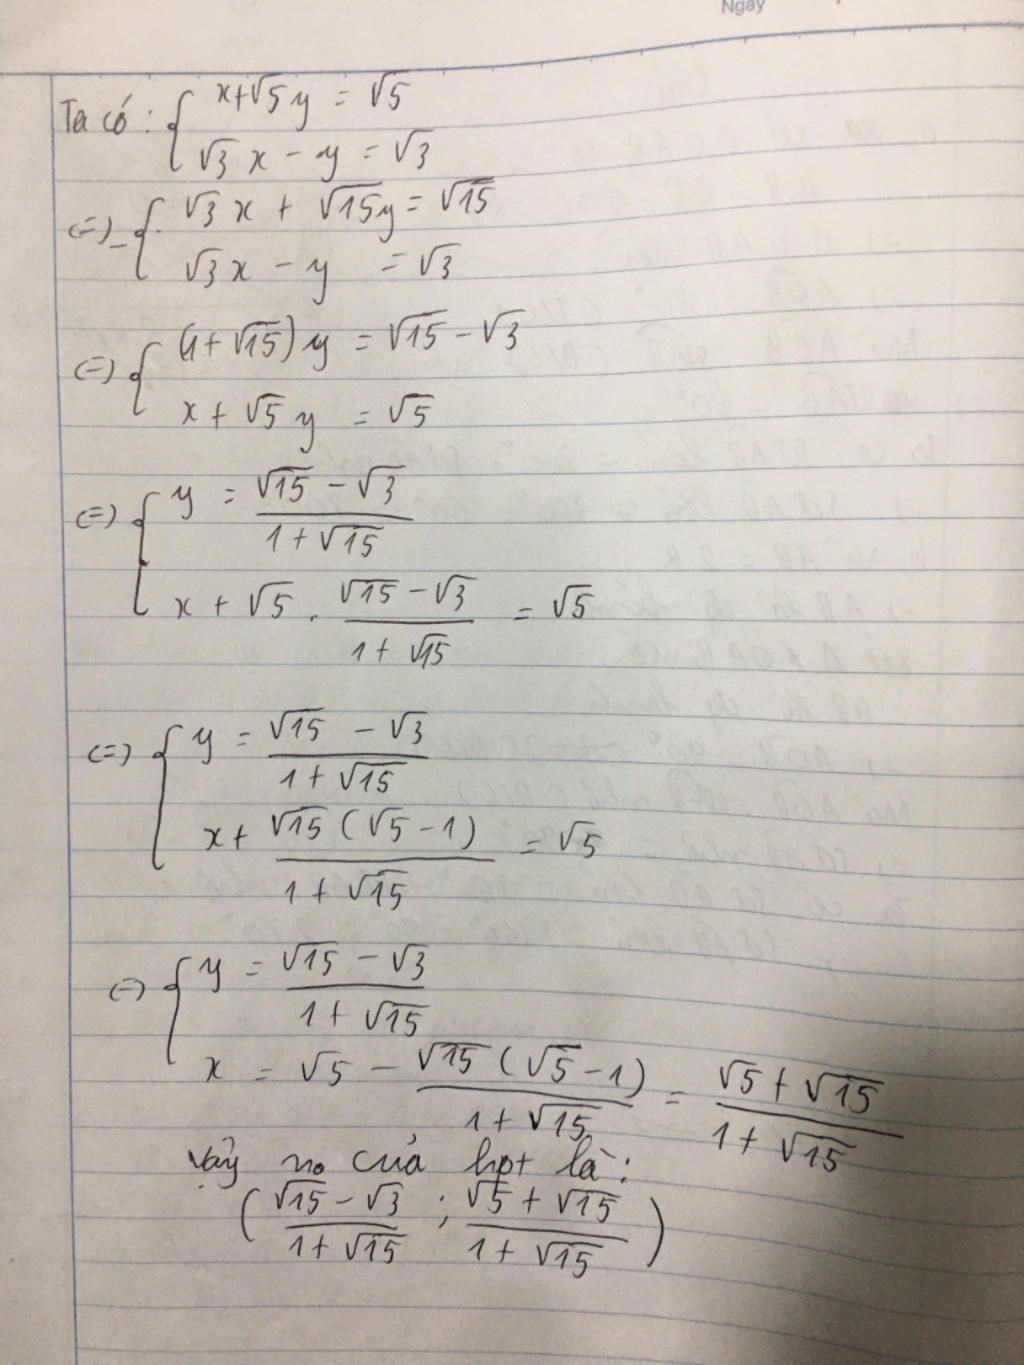 Ngày
Ta có: { x+√5 y = √5
√3 x - y = √3
(=) { √3 x + √15y = √15
√3x - y = √3
(=) { (1+√15) y = √15 - √3
x + √5 y = √5
(=) { y = (√15 - √3)/(1+√15)
x + √5 . (√15 - √3)/(1+√15) = √5
(=) { y = (√15 - √3)/(1+√15)
x + (√15 (√5 - 1))/(1+√15) = √5
(=) { y = (√15 - √3)/(1+√15)
x = √5 - (√15 (√5 - 1))/(1+√15) = (√5 + √15)/(1+√15)
Vậy no của hpt là:
((√15 - √3)/(1+√15) ; (√5 + √15)/(1+√15))